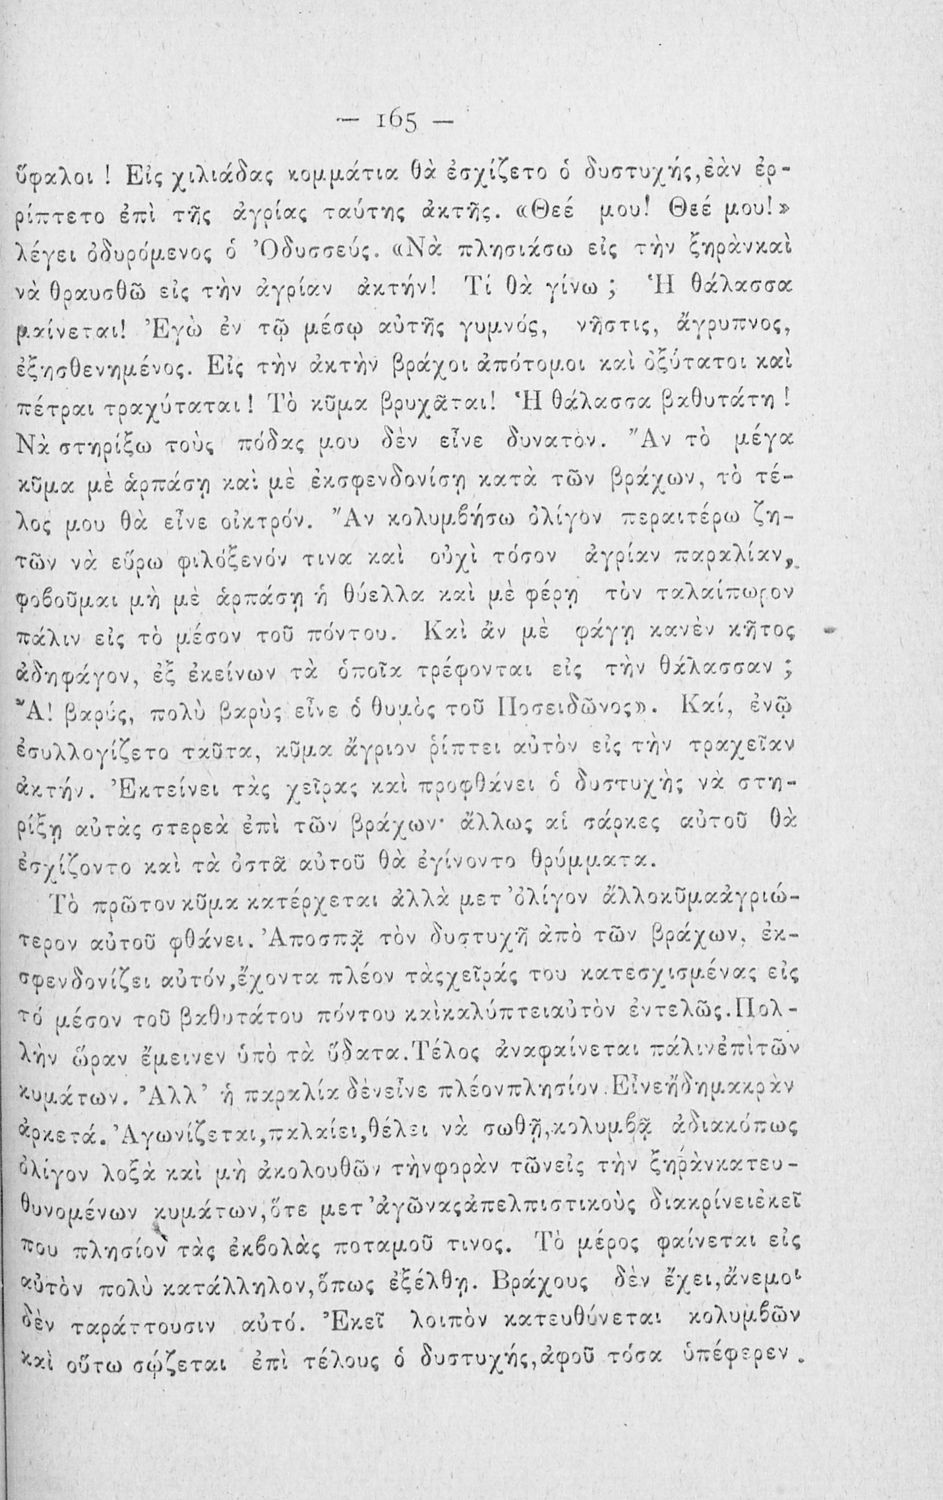 — 165 —
ὕφαλοι ! Εἰς χιλιάδας κομμάτια θὰ ἐσχίζετο ὁ δυστυχής,ἐὰν ἐρ-
ρίπτετο ἐπὶ τῆς ἀγρίας ταύτης ἀκτῆς. «Θεέ μου! Θεέ μου!»
λέγει ὀδυρόμενος ὁ Ὀδυσσεύς. «Νὰ πλησιάσω εἰς τὴν ξηρὰνκαὶ
νὰ θραυσθῶ εἰς τὴν ἀγρίαν ἀκτήν! Τί θὰ γίνω ; Ἡ θάλασσα
μαίνεται! Ἐγὼ ἐν τῷ μέσῳ αὐτῆς γυμνός, νῆστις, ἄγρυπνος,
ἐξησθενημένος. Εἰς τὴν ἀκτὴν βράχοι ἀπότομοι καὶ ὀξύτατοι καὶ
πέτραι τραχύταται! Τὸ κῦμα βρυχᾶται! Ἡ θάλασσα βαθυτάτη !
Νὰ στηρίξω τοὺς πόδας μου δὲν εἶνε δυνατόν. Ἂν τὸ μέγα
κῦμα μὲ ἁρπάσῃ καὶ μὲ ἐκσφενδονίσῃ κατὰ τῶν βράχων, τὸ τέ-
λος μου θὰ εἶνε οἰκτρόν. Ἂν κολυμβήσω ὀλίγον περαιτέρω ζη-
τῶν νὰ εὕρω φιλόξενόν τινα καὶ οὐχὶ τόσον ἀγρίαν παραλίαν,
φοβοῦμαι μὴ μὲ ἁρπάσῃ ἡ θύελλα καὶ μὲ φέρῃ τὸν ταλαίπωρον
πάλιν εἰς τὸ μέσον τοῦ πόντου. Καὶ ἂν μὲ φάγῃ κανὲν κῆτος
ἀδηφάγον, ἐξ ἐκείνων τὰ ὁποῖα τρέφονται εἰς τὴν θάλασσαν ;
Ἆ! βαρύς, πολὺ βαρὺς εἶνε ὁ θυμὸς τοῦ Ποσειδῶνος». Καί, ἐνῷ
ἐσυλλογίζετο ταῦτα, κῦμα ἄγριον ῥίπτει αὐτὸν εἰς τὴν τραχεῖαν
ἀκτήν. Ἐκτείνει τὰς χεῖρας καὶ προφθάνει ὁ δυστυχὴς νὰ στη-
ρίξῃ αὐτὰς στερεὰ ἐπὶ τῶν βράχων· ἄλλως αἱ σάρκες αὐτοῦ θὰ
ἐσχίζοντο καὶ τὰ ὀστᾶ αὐτοῦ θὰ ἐγίνοντο θρύμματα.
Τὸ πρῶτον κῦμα κατέρχεται ἀλλὰ μετ’ ὀλίγον ἄλλοκῦμαἀγριώ-
τερον αὐτοῦ φθάνει. Ἀποσπᾷ τὸν δυστυχῆ ἀπὸ τῶν βράχων, ἐκ-
σφενδονίζει αὐτόν,ἔχοντα πλέον τὰςχεῖράς του κατεσχισμένας εἰς
τό μέσον τοῦ βαθυτάτου πόντου καὶκαλύπτειαὐτὸν ἐντελῶς.Πολ-
λὴν ὥραν ἔμεινεν ὑπὸ τὰ ὕδατα.Τέλος ἀναφαίνεται πάλινἐπὶτῶν
κυμάτων. Ἀλλ’ ἡ παραλία δὲνεἶνε πλέονπλησίον.Εἶνεἤδημακρὰν
ἀρκετά. Ἀγωνίζεται,παλαίει,θέλει νὰ σωθῇ,κολυμβᾷ ἀδιακόπως
ὀλίγον λοξὰ καὶ μὴ ἀκολουθῶν τὴνφορὰν τῶνεἰς τὴν ξηρὰνκατευ-
θυνομένων κυμάτων,ὅτε μετ’ἀγῶναςἀπελπιστικοὺς διακρίνειἐκεῖ
που πλησίον τὰς ἐκβολὰς ποταμοῦ τινος. Τὸ μέρος φαίνεται εἰς
αὐτὸν πολὺ κατάλληλον,ὅπως ἐξέλθῃ. Βράχους δὲν ἔχει,ἄνεμοι
δὲν ταράττουσιν αὐτό. Ἐκεῖ λοιπὸν κατευθύνεται κολυμβῶν
καὶ οὕτω σῴζεται ἐπὶ τέλους ὁ δυστυχής,ἀφοῦ τόσα ὑπέφερεν .